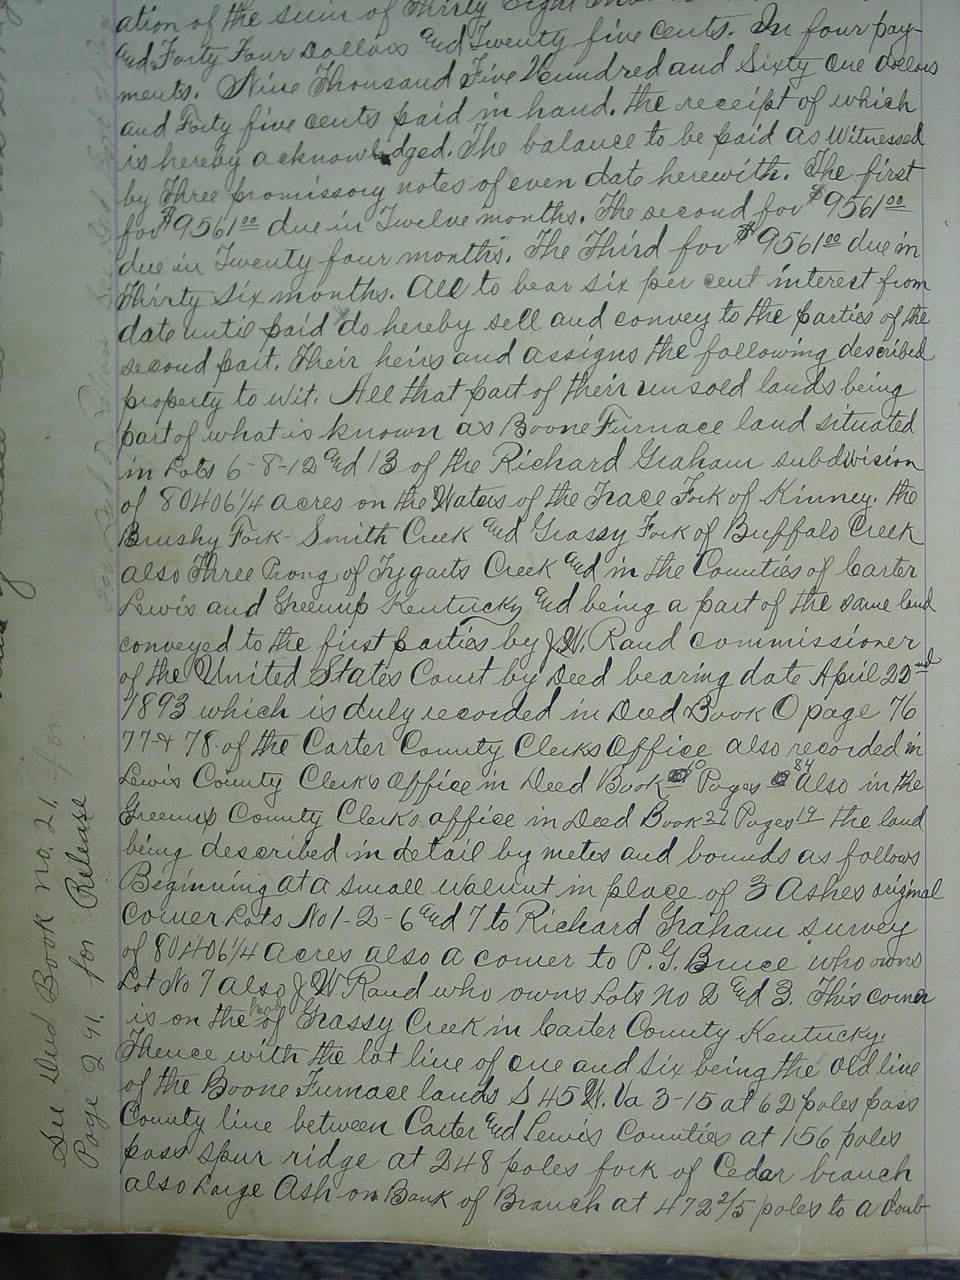 ation of the sum of Thirty Eight
and Forty Four Dollars and Twenty five cents. In four pay-
ments. Nine Thousand Five Hundred and Sixty One dollars
and Forty five cents paid in hand, the receipt of which
is hereby acknowledged. The balance to be paid as Witnessed
by Three promissory notes of even date herewith. The first
for $9561 00 due in Twelve months. The second for $9561 00
due in Twenty four months. The Third for $9561 00 due in
Thirty Six months. All to bear six per cent interest from
date until paid do hereby sell and convey to the parties of the
second part. Their heirs and assigns the following described
property to wit. All that part of their unsold lands being
part of what is known as Boone Furnace land situated
in Lots 6-8-12 and 13 of the Richard Graham subdivision
of 80406 1/4 acres on the Waters of the Trace Fork of Kinney. the
Brushy Fork - Smith Creek and Grassy Fork of Buffalo Creek
also Three Prong of Tygarts Creek and in the Counties of Carter
Lewis and Greenup Kentucky and being a part of the same land
conveyed to the first parties by J.W. Rand commissioner
of the United States Court by Deed bearing date April 22nd
1893 which is duly recorded in Deed Book O page 76
77 & 78 of the Carter County Clerks Office also recorded in
Lewis County Clerks office in Deed Book 10 Pages 84 Also in the
Greenup County Clerks office in Deed Book Pages the land
being described in detail by metes and bounds as follows
Beginning at a small walnut in place of 3 Ashes original
Corner Lots No 1-2-6 and 7 to Richard Graham survey
of 80406 1/4 acres also a corner to P.G. Bruce who owns
Lot No 7 also J W Rand who owns Lots no 2 and 3. This corner
is on the head of Grassy Creek in Carter County Kentucky.
Thence with the lot line of one and six being the old line
of the Boone Furnace lands S 45 W. Va 3-15 at 62 poles pass
County line between Carter and Lewis Counties at 156 poles
pass spur ridge at 248 poles fork of Cedar branch
also Large Ash on Bank of Branch at 472 2/5 poles to a doub-
See Deed Book no. 21.
Page 291. for Release